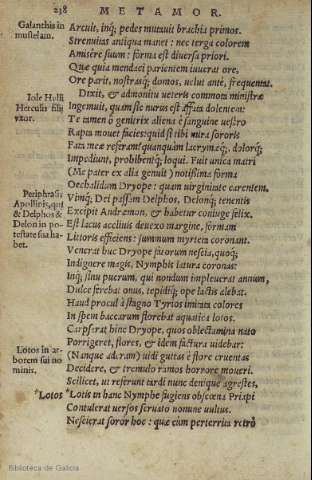 238 METAMOR.
Galanthis in
mustelam.
Arcuit, inq́; pedes mutuit brachia primos.
Strenuitas antiqua manet: nec terga colorem
Amisere suum: forma est diuersa priori.
Quæ quia mendaci parientem iuuerat ore.
Ore parit. nostrasq́; domos, ut et ante, frequentat.
Iole Hylli
Herculis filij
vxor.
Dixit, & admonitu ueteris commota ministræ
Ingemuit, quam sic nurus est affata dolentem:
Te tamen ô genitrix aliena è sanguine uestro
Rapta mouet facies: quid si tibi mira sororis
Fata meæ referam? quanquam lacrymæq́;, dolorq́;
Impediunt, prohibentq́; loqui. Fuit unica matri
(Me pater ex alia genuit) notissima forma
Oechalidum Dryope: quam uirginitate carentem,
Periphrasis
Apollinis, qui
& Delphos &
Delon in po-
testate sua ha-
bet.
Vimq́; Dei passam Delphos, Delonq́; tenentis
Excipit Andræmon, & habetur coniuge felix.
Est lacus accliuis deuexo margine, formam
Littoris efficiens: summum myrteta coronant.
Venerat huc Dryope fatorum nescia, quoq́;
Indignere magis, Nymphis latura coronas:
Inq́; sinu puerum, qui nondum impleuerat annum,
Dulce ferebat onus, tepidiq́; ope lactis alebat.
Haud procul à stagno Tyrios imitata colores
In spem baccarum florebat aquatica lotos.
Carpserat hinc Dryope, quos oblectamina nato
Lotos in ar-
borem sui no-
minis.
Porrigeret, flores, & idem factura uidebar:
(Nanque aderam) uidi guttas è flore cruentas
Decidere, & tremulo ramos horrore moueri.
Scilicet, ut referunt tardi nunc denique agrestes,
*Lotos
*Lotis in hanc Nymphe fugiens obscœna Priapi
Contulerat uersos seruato nomine uultus.
Nescierat soror hoc: quæ cùm perterrita retrò
Biblioteca de Galicia